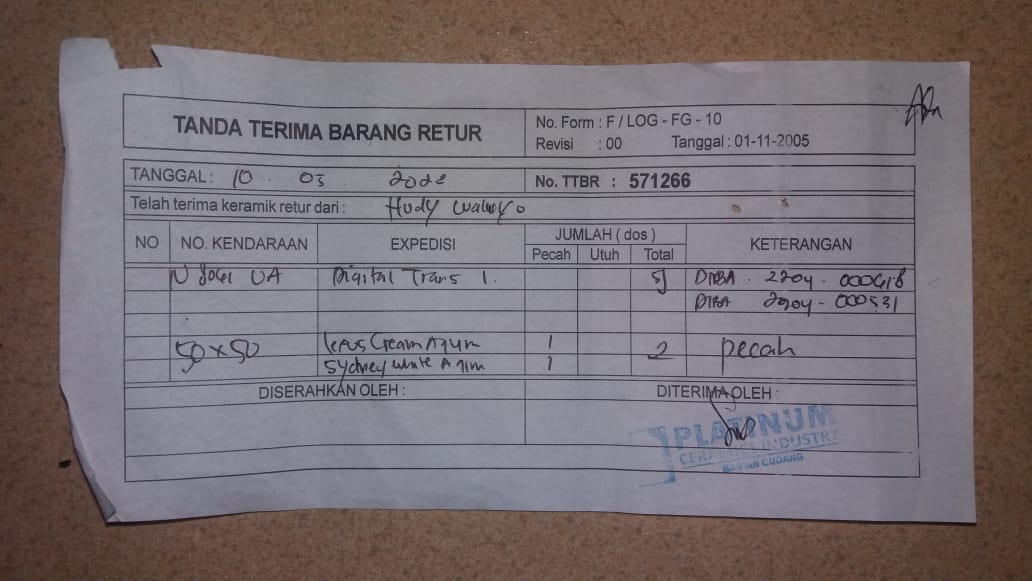 TANDA TERIMA BARANG RETUR
No. Form : F / LOG - FG - 10
Revisi : 00 Tanggal : 01-11-2005
TANGGAL : 10 . 03 . 2022
No. TTBR : 571266
Telah terima keramik retur dari : Hudy waluyo
NO NO. KENDARAAN EXPEDISI JUMLAH ( dos ) KETERANGAN
Pecah Utuh Total
N UA Digital Trans 1. DTBA . 2204 . 000618
DTBA 2204 - 000531
50 x 50 Cream Agum 1 2 pecah
Sydney white A 1
DISERAHKAN OLEH : DITERIMA OLEH :
PLATINUM
CERAMICS INDUSTRY
BAGIAN GUDANG